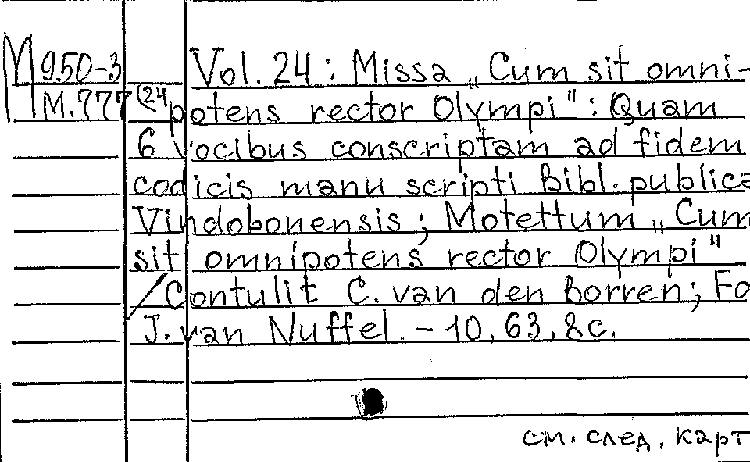 М 950-3 Vol. 24: Missa „Cum sit omni-
М.777 (24 potens rector Olympi": Quam
6 vocibus conscriptam ad fidem
codicis manu scripti Bibl. publica
Vindobonensis; Motettum „Cum
sit omnipotens rector Olympi"
/Contulit C. van den Borren; Fo
J. van Nuffel. – 10, 63, 8 c.
см. след. карт